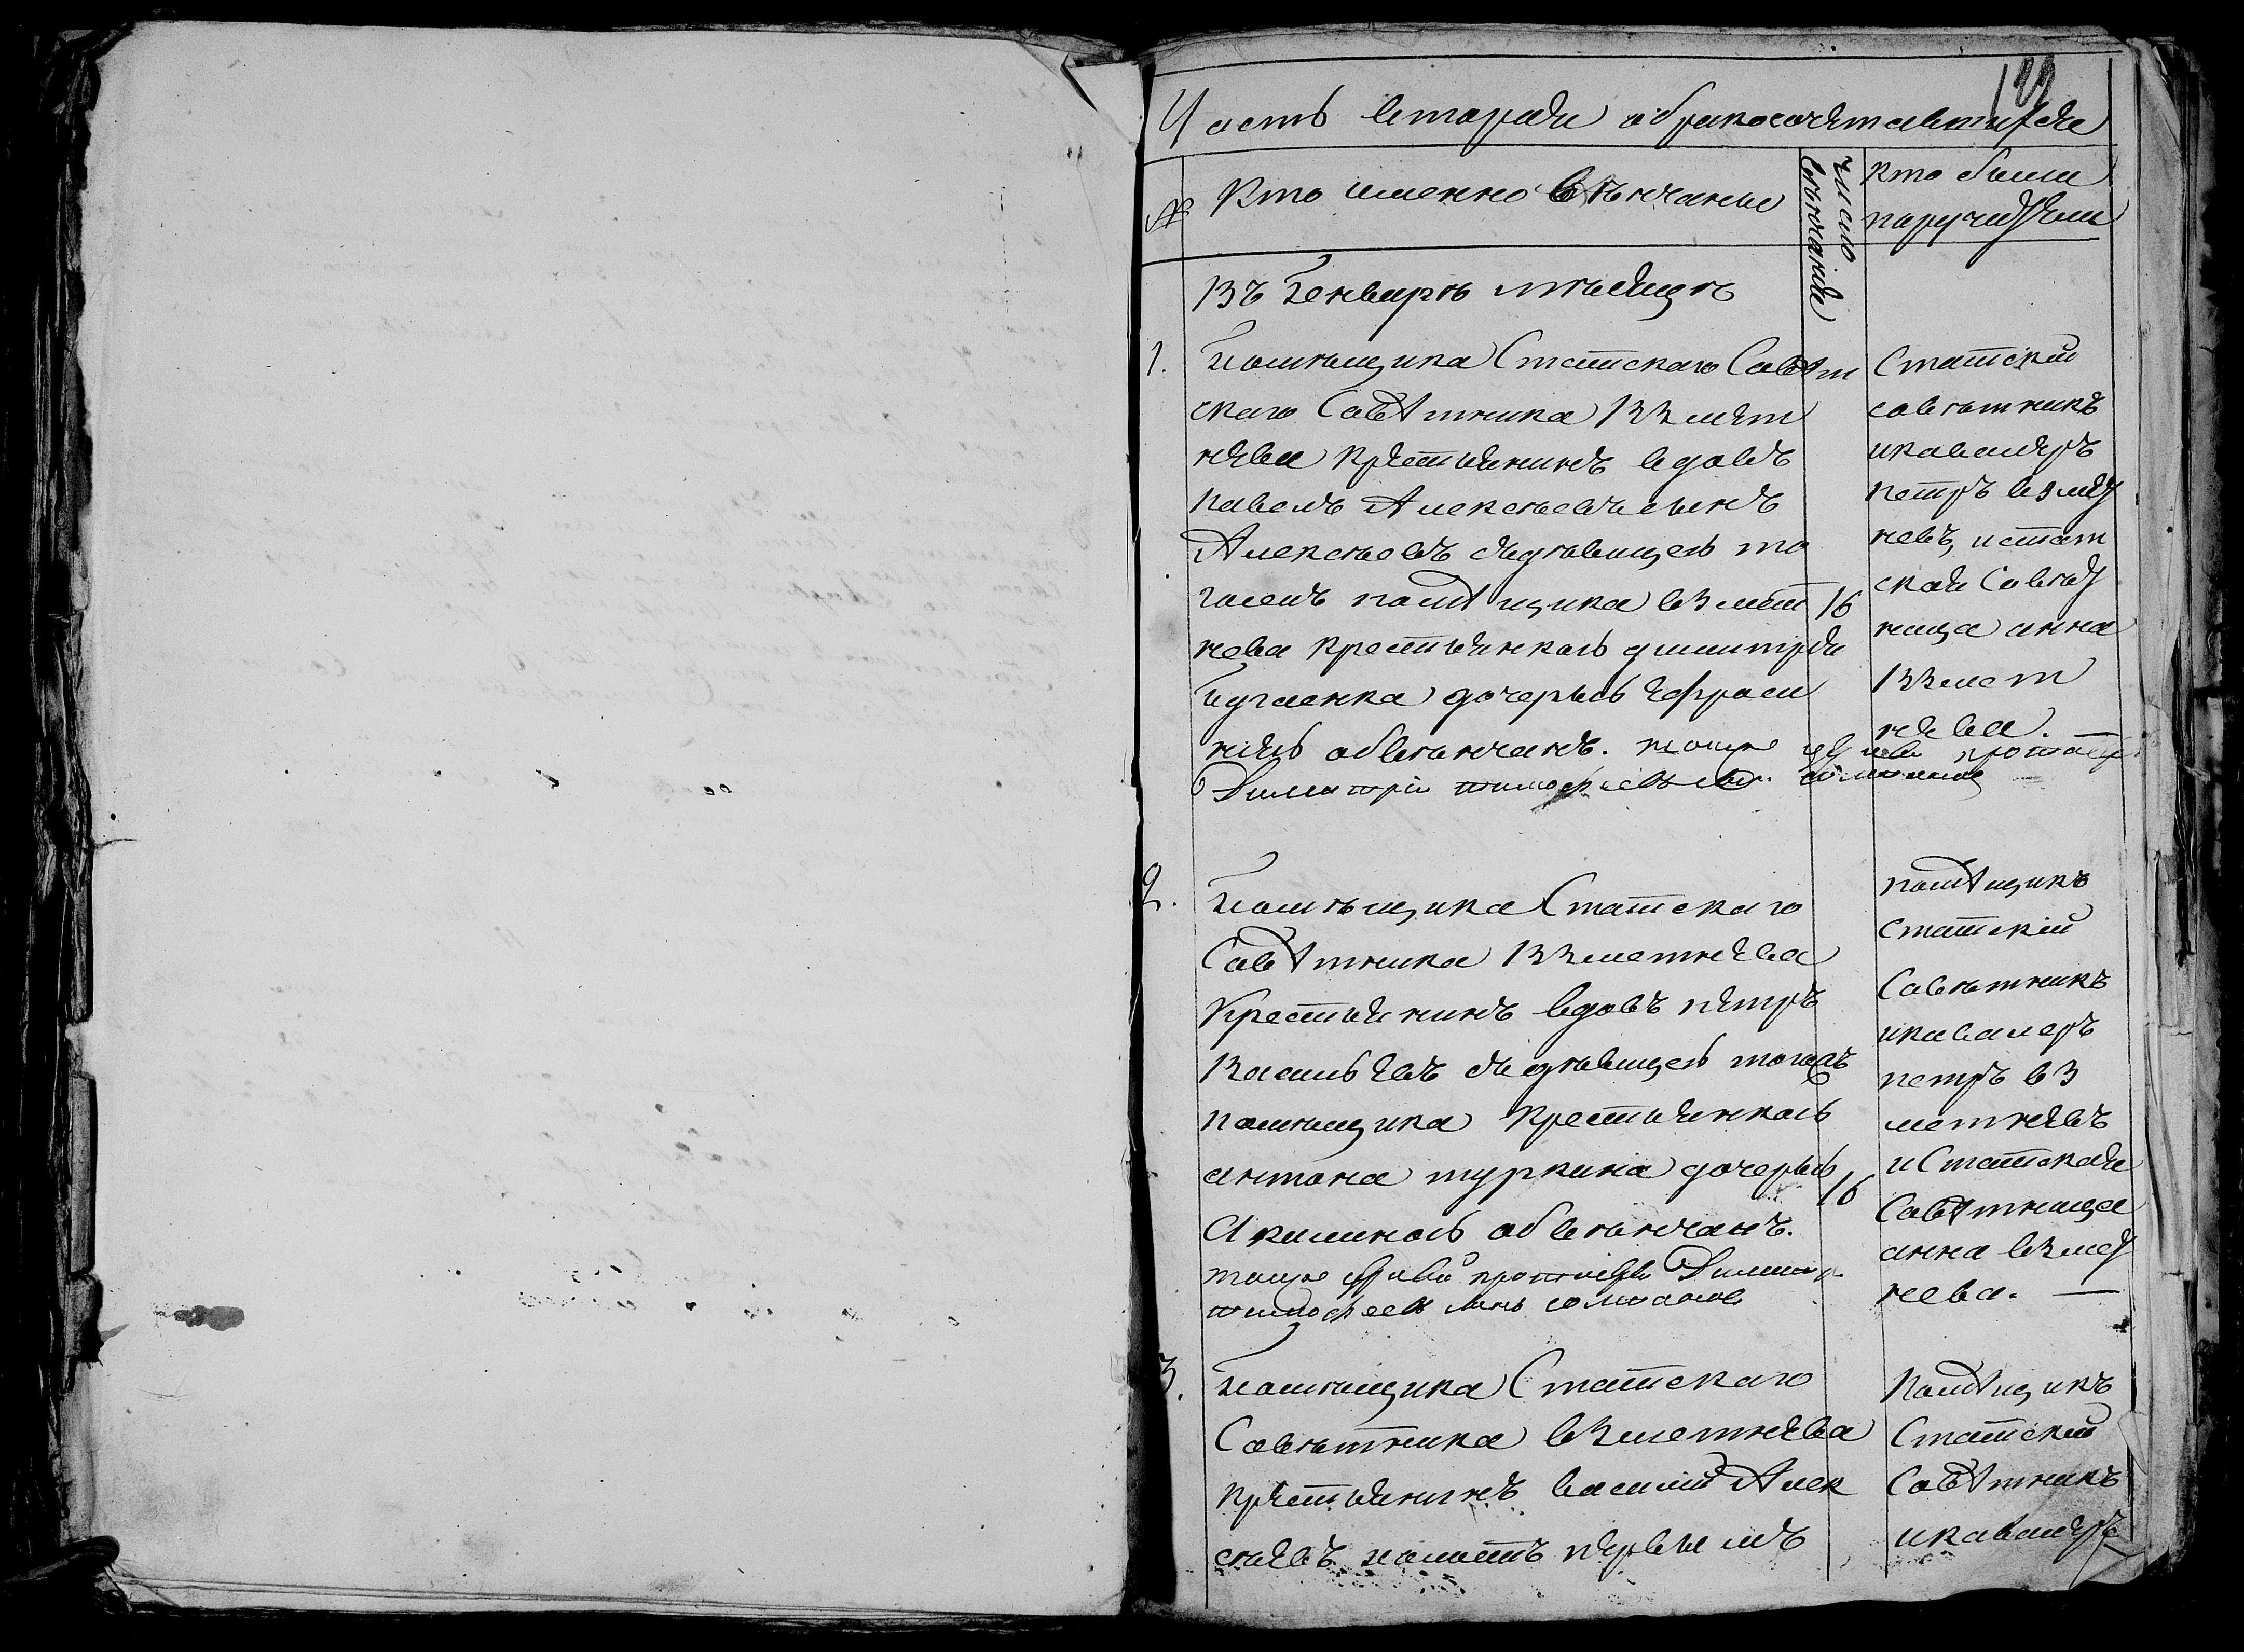 Часть вторая о бракосочетавшихся
№
Кто именно венчаны
число венчания
кто были
поручители
Въ Генваръ мѣсяцѣ
1.
Помѣщика Статскаго Совѣт
скаго Совѣтника Взмет
нева крестьянинъ вдовъ
павелъ Алексѣевъ сынъ
Алексѣевъ съ дѣвицею то
гожъ помѣщика взмет
нева крестьянкою димитрия
дочерью Ефроси
ниею обвѣнчанъ. тоже
Димитрій тимофеевъ
16
Статскій
совѣтникъ
и кавалеръ
петръ взмет
невъ, и стат
ская Совѣт
ница анна
Взмет
нева.
2.
Помѣщика Статскаго
Совѣтника Взметнева
Крестьянинъ вдовъ петръ
Васильевъ съ дѣвицею тогожъ
помѣщика Крестьянкою
антона туркина дочерью
Акилиною обвѣнчанъ.
тоже Димитр
тимофеевъ сынъ
16
помѣщикъ
статскій
Совѣтникъ
и кавалеръ
петръ вз
метневъ
и Статская
Совѣтница
анна взмет
нева. —
3.
Помѣщика Статскаго
Совѣтника взметнева
крестьянинъ василий Алек
сѣевъ холостъ первымъ
Помѣщикъ
Статскій
Совѣтникъ
и кавалеръ